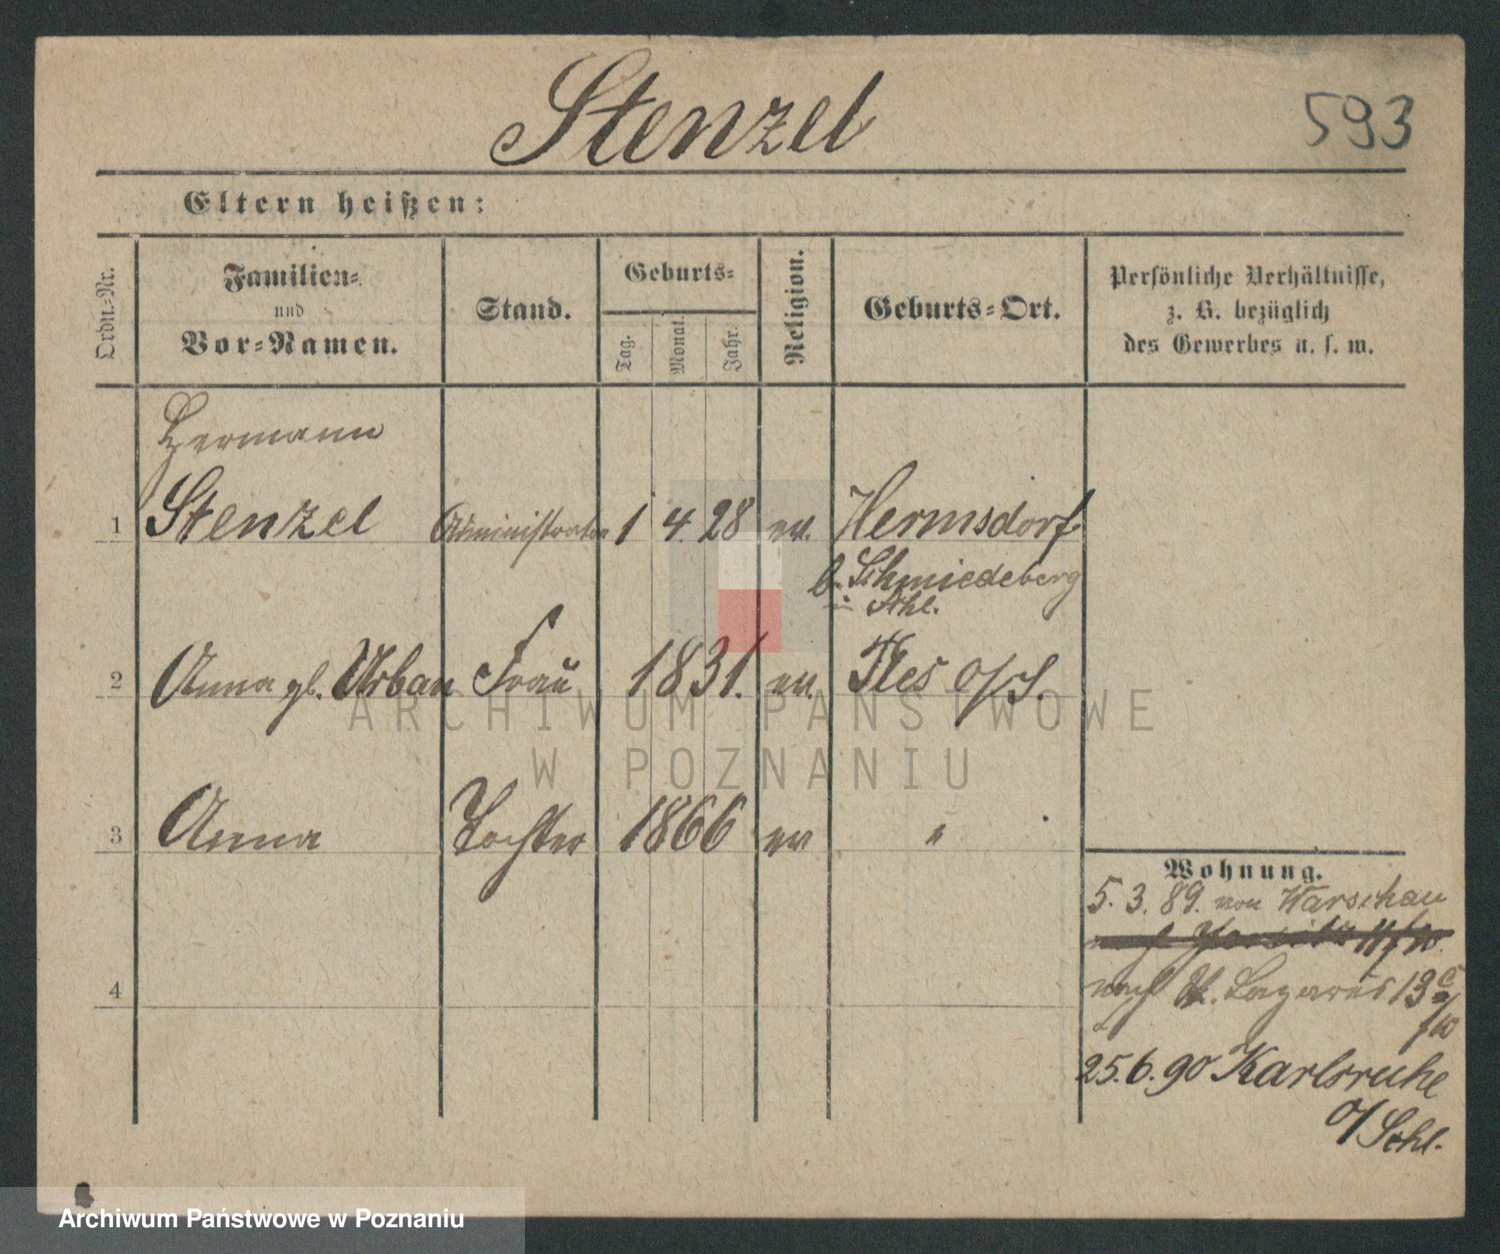 Stenzel
593
Eltern heißen:
Ordn.-Nr.
Familien-
und
Vor-Namen.
Stand.
Geburts-
Tag.
Monat.
Jahr.
Religion.
Geburts-Ort.
Persönliche Verhältnisse,
z. B. bezüglich
des Gewerbes u. s. w.
Hermann
1 Stenzel Administrator 1 4. 28 ev. Hermsdorf
b. Schmiedeberg
in Schl.
2 Anna gb. Urban Frau 1831. ev. Ples O/S.
3 Anna Tochter 1866 ev "
Wohnung.
5. 3. 89. von Warschau
nach St. Lazarus 13
4
25.6.90 Karlsruhe
O/Schl.
ARCHIWUM PAŃSTWOWE
W POZNANIU
Archiwum Państwowe w Poznaniu